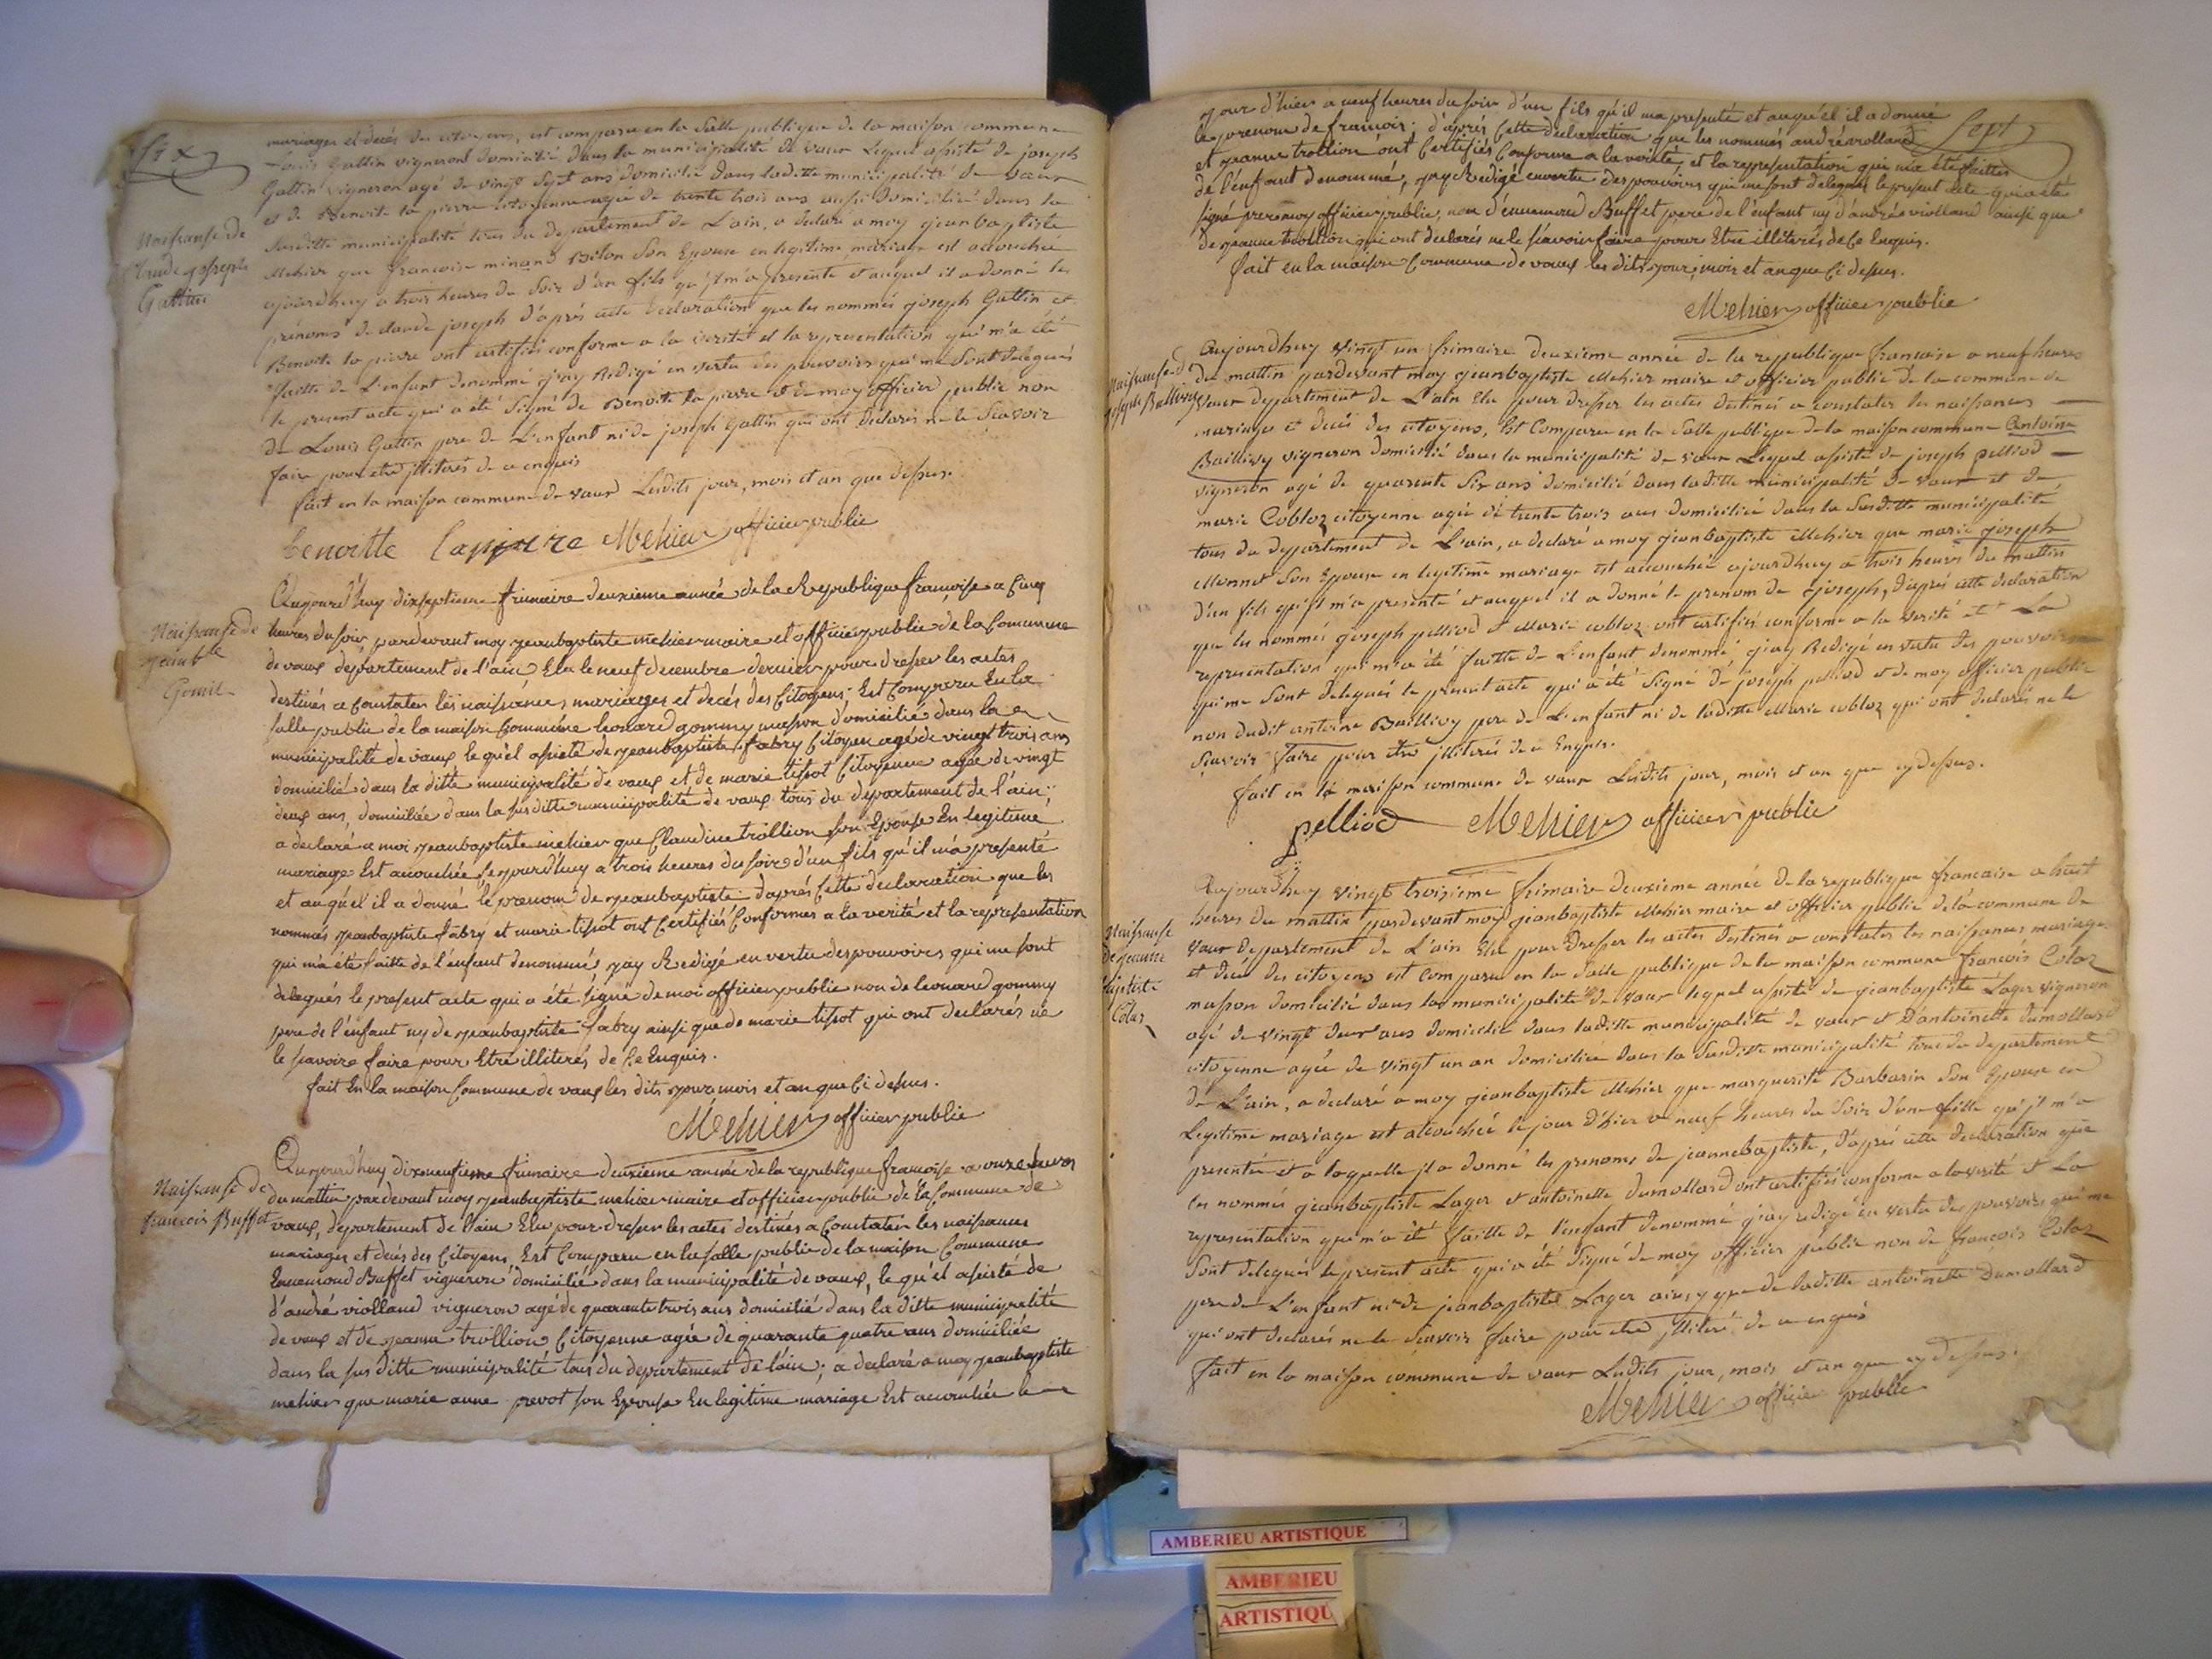 Six
mariages et decés des citoyens, est comparu en la Salle publique de la maison commune
Louis Gattin vigneron domicilié dans la municipalité de vaux Lequel assisté de joseph
Gattin vigneron agé de vingt Sept ans domicilié dans laditte municipalité de vaux
et de Benoite la pierre citoyenne agée de trente trois ans aussi domiciliée dans la
Susditte municipalité tous du departement de L'ain, a declaré a moy jeanbaptiste
Mehier que francoise minand Biton Son Epouse en legitime mariage est accouchée
ajourdhuy a trois heures du Soir d'un fils qu'jl m'a presenté et auquel il a donné les
prénoms de claude joseph d'aprés cette declaration que les nommés joseph Gattin et
Benoite la pierre ont certifiés conforme a la verité et la representation qui m'a été
faitte de L'enfant denommé j'ay Redigé en vertu des pouvoirs qui me Sont delegués
le present acte qui a été Signé de Benoite la pierre et de moy officier public non
de Louis Gattin pere de L'enfant ni de joseph Gattin qui ont declarés ne le Sçavoir
faire pour etre jlliterés de ce enquis
fait en la maison commune de vaux Lesdits jour, mois et an que dessus.
Naissanse de
Claude joseph
Gattin
benoitte lapierre Mehier officier public
Aujourd'huy dixseptieme frimaire deuxieme année de la Republique francoise a Cinq
heures du soir, pardevant moy jeanbaptiste mehier maire et officier public de la Commune
de vaux departement de l'ain Elu le neuf decembre dernier pour dresser les actes
destinés a Constater les naissances, mariages et decés des Citoyens. Est Comparu En la
salle public de la maison Commune leonard gommy masson domicilié dans la
municipalité de vaux lequ'el assisté de jeanbaptiste fabry Citoyen agé de vingt trois ans
domicilié dans la ditte municipalité de vaux et de marie tissot Citoyenne agée de vingt
deux ans, domiciliée dans la susditte municipalité de vaux tous du departement de l'ain;
a declaré a moi jeanbaptiste mehier que Claudine trollion son Epouse En legitime
mariage Est accouchée Cejourd'huy a trois heures du soir d'un fils qu'il m'a presenté
et auqu'el il a donné le prenom de jeanbaptiste d'aprés Cette declaration que les
nommés jeanbaptiste fabry et marie tissot ont Certifiés Conformes a la verité et la representation
qui m'a été faitte de l'enfant denommés jay Redigé en vertu des pouvoirs qui me sont
delegués le present acte qui a été signé de moi officier public non de leonard gommy
pere de l'enfant ny de jeanbaptiste fabry ainsi que de marie tissot qui ont declarés ne
le savoire faire pour Etre illiterés de Ce Enquis.
fait En la maison Commune de vaux les dits jour mois et an que Ci dessus.
Naissanse de
jean bte
Gomit
Mehier officier public
Aujourd'huy dixneufieme frimaire deuxieme année de la republique francoise a onze heures
du mattin pardevant moy jeanbaptiste mehier maire et officier public de la Commune de
vaux, departement de l'ain Elu pour dresser les actes destinés a Constater les naissances
mariages et decés des Citoyens, Est Comparu en la salle public de la maison Commune
Ennemond Buffet vigneron domicilié dans la municipalité de vaux, le qu'el assisté de
d'andré violland vigneron agé de quarante trois ans domicilié dans la ditte municipalité
de vaux et de jeanne trollion Citoyenne agée de quarante quatre ans domiciliée
dans la sus ditte municipalité tous du departement de l'ain; a declaré a moy jeanbaptiste
mehier que marie anne prevot son Epouse En legitime mariage Est accouchée le
Naissanse de
francois Buffet
Sept
jour d'hier a neuf heures du soir d'un fils qu'il ma presenté et auqu'el il a donné
le prenom de francois; d'aprés Cette declaration que les nommés andré violland
et jeanne trollion ont Certifiés Conforme a la verité, et la representation qui m'a été faittes
de l'enfant denommé, jay Redigé en vertu des pouvoirs qui me sont delegués le present acte qui a été
signé par moy officier public, non d'ennemond Buffet pere de l'enfant ny d'andré violland ainsi que
de jeanne trollion qui ont declarés ne le sçavoir faire pour Etre illiterés de Ce Enquis.
fait en la maison Commune de vaux les dits jour, mois et an que Ci dessus.
Mehier officier public
Aujourdhuy vingt un frimaire deuxième année de la republique francoise a neuf heures
du mattin pardevant moy jeanbaptiste Mehier maire et officier public de la commune de
vaux departement de L'ain Elu pour dresser les actes destinés a constater les naissances
mariages et decés des citoyens, Est Comparu en la Salle publique de la maison commune Antoine
Baillivy vigneron domicilié dans la municipalité de vaux Lequel assisté de joseph pelliod
vigneron agé de quarante Six ans domicilié dans laditte municipalité de vaux et de
marie Cobloz citoyenne agée de trente trois ans domiciliée dans la Susditte municipalité
tous du departement de L'ain, a declaré a moy jeanbaptiste Mehier que marie joseph
Monnet Son Epouse en legitime mariage est accouchée ajourdhuy a trois heures du mattin
d'un fils qu'jl m'a presenté et auquel il a donné le prenom de joseph, d'aprés cette declaration
que les nommés joseph pelliod et Marie cobloz ont certifiés conforme a la verité et La
representation qui m'a été faitte de L'enfant denommé j'ay Redigé en vertu des pouvoirs
qui me Sont delegués le present acte qui a été Signé de joseph pelliod et de moy officier public
non dudit antoine Baillivy pere de L'enfant ni de laditte Marie cobloz qui ont declarés ne le
Sçavoir faire pour etre jlliterés de ce Enquis.
fait en la maison commune de vaux Lesdits jour, mois et an que cydessus.
Naissanse de
joseph Baillivy
pelliod Mehier officier public
Aujourdhuy vingt troisieme frimaire deuxième année de la republique francaise a huit
heures du mattin pardevant moy jeanbaptiste Mehier maire et officier public de la commune de
vaux departement de L'ain Elu pour dresser les actes destinés a constater les naissances mariages
et decés des citoyens est comparu en la Salle publique de la maison commune francois Colaz
masson domicilié dans la municipalité de vaux lequel assisté de jeanbaptiste Lager vigneron
agé de vingt deux ans domicilié dans laditte municipalité de vaux et D'antoinette dumollard
citoyenne agée de vingt un an domiciliée dans la Susditte municipalité tous du departement
de L'ain, a declaré a moy jeanbaptiste Mehier que marguerite Barbarin Son Epouse en
Legitime mariage est accouchée le jour d'hier a neuf heures du Soir d'une fille qu'jl m'a
presenté et a laquelle jl a donné les prenoms de jeannebaptiste, d'aprés cette declaration que
les nommés jeanbaptiste Lager et antoinette dumollard ont certifiés conforme a la verité et La
representation qui m'a été faitte de l'enfant denommé j'ay redigé en vertu des pouvoirs qui me
Sont delegués le present acte qui a été Signé de moy officier public non de francois Colaz
pere de L'enfant ni de jeanbaptiste Lager ainsy que de laditte antoinette Dumollard
qui ont declarés ne le Scavoir faire pour etre jlliteré de ce enquis
fait en la maison commune de vaux Lesdits jour, mois et an que cydessus.
Naissanse
de jeanne
baptiste
Colaz
Mehier officier public
AMBERIEU ARTISTIQUE
AMBERIEU
ARTISTIQU